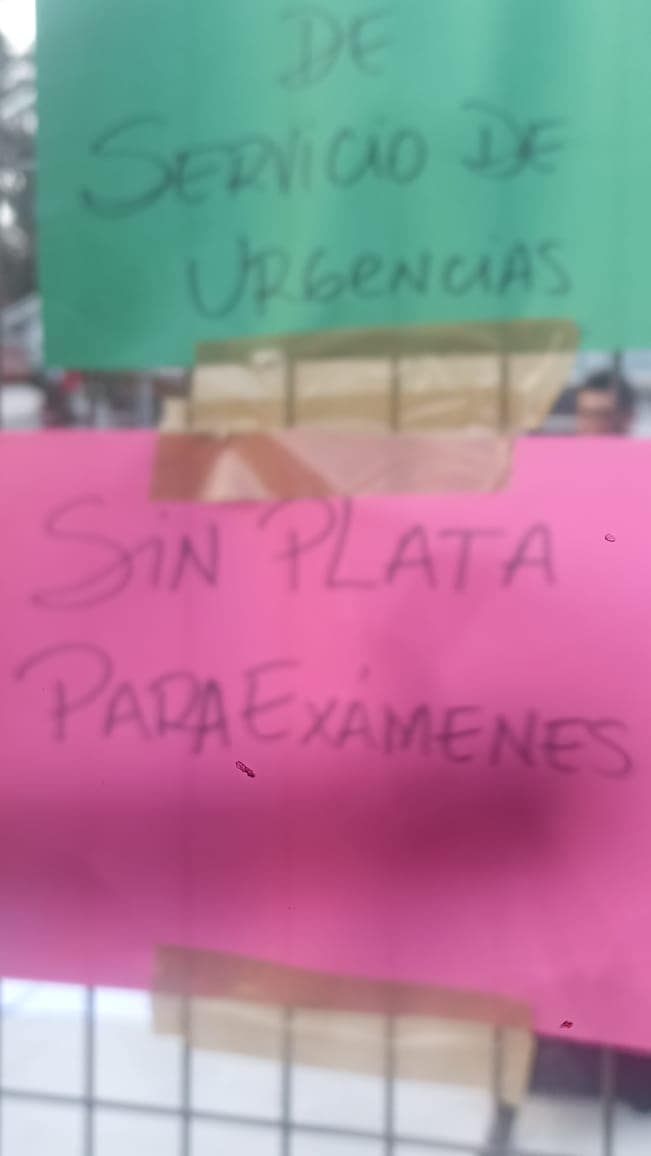 DE
SERViCiO DE
URGENCiAS
SiN PLATA
PARA EXÁMENES